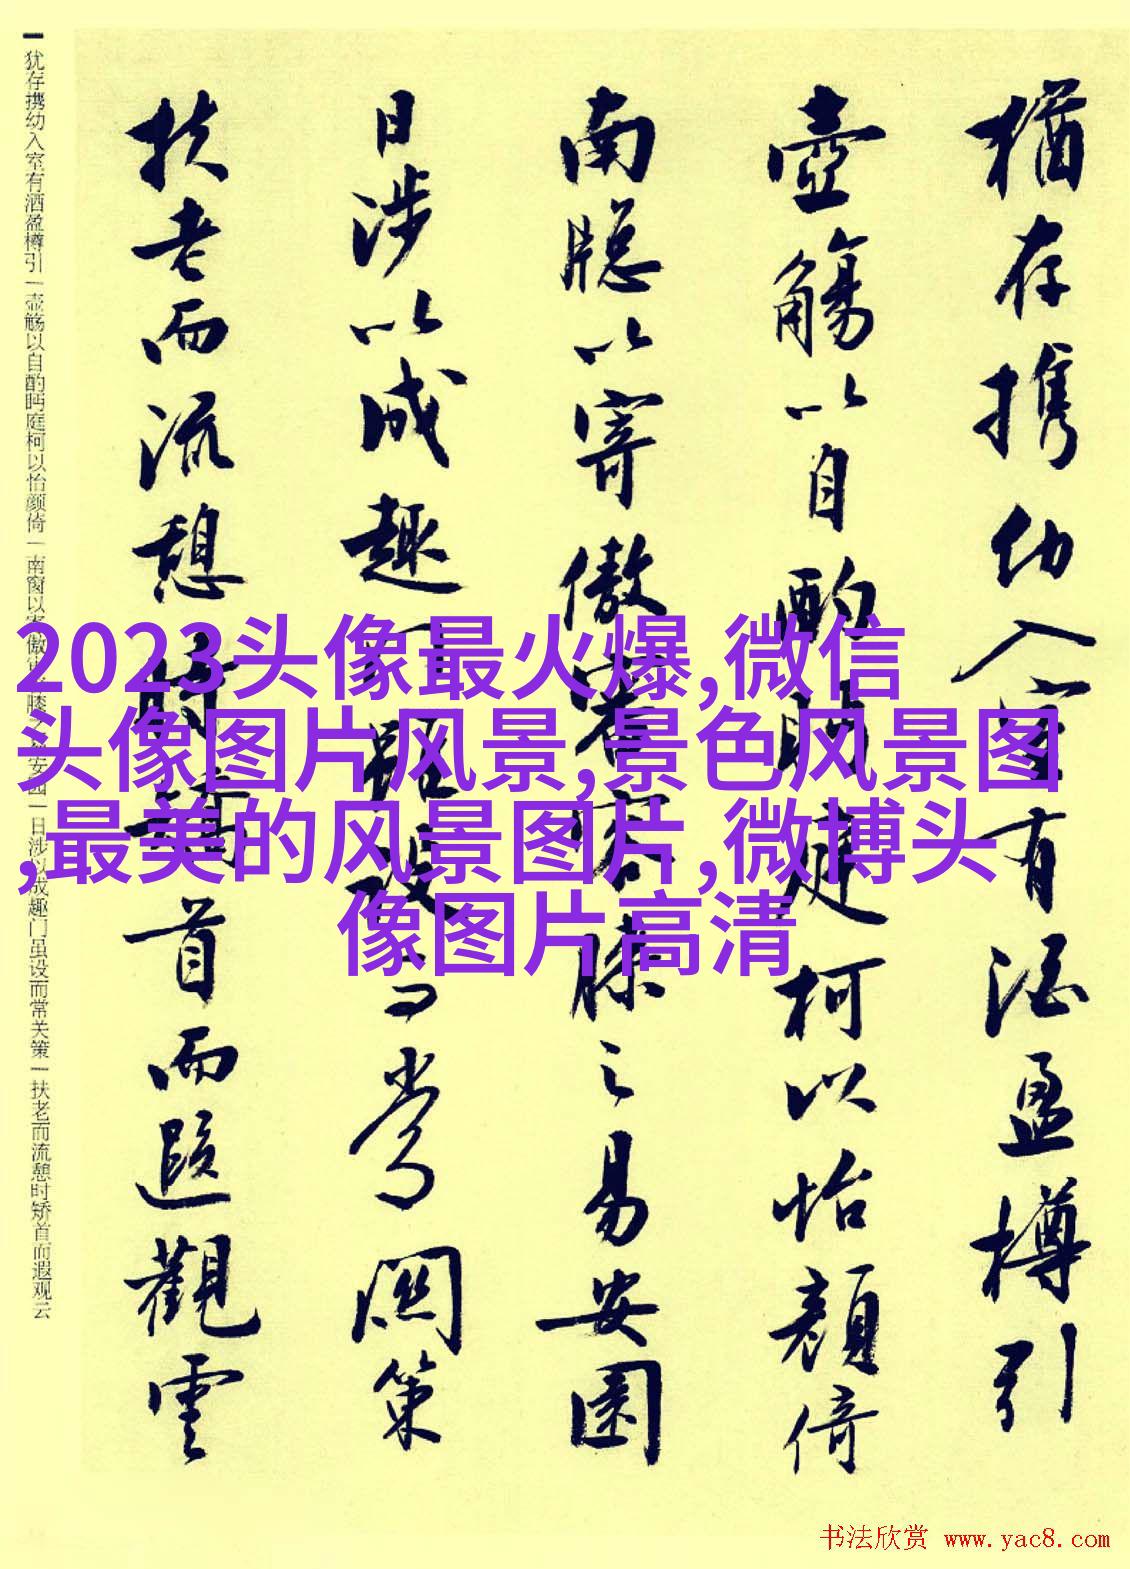 猶存携幼入室有酒盈樽引
壺觴以自酌眄庭柯以怡顏倚
南牕以寄傲審容膝之易安園
日涉以成趣門雖設而常關策
扶老而流憩時矯首而遐觀雲
犹存携幼入室有酒盈樽引|壶觞以自酌眄庭柯以怡颜倚|南窗以寄傲审容膝之易安园|日涉以成趣门虽设而常关策|扶老而流憩时矫首而遐观云
2023头像最火爆,微信
头像图片风景,景色风景图
,最美的风景图片,微博头
像图片高清
书法欣赏 www.yac8.com